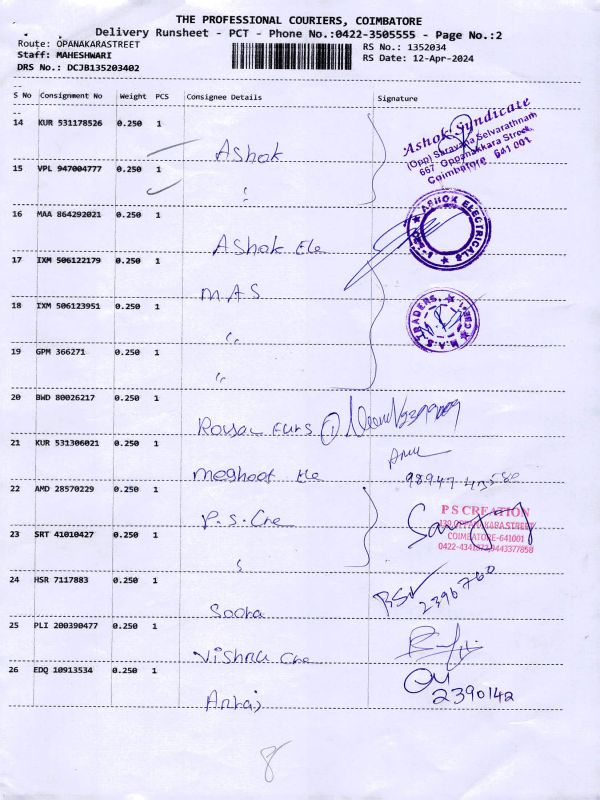 THE PROFESSIONAL COURIERS, COIMBATORE
Delivery Runsheet - PCT - Phone No.:0422-3505555 - Page No.:2
Route: OPANAKARASTREET
RS No.: 1352034
Staff: MAHESHWARI
RS Date: 12-Apr-2024
DRS No.: DCJB135203402
S No Consignment No Weight PCS Consignee Details Signature
14 KUR 531178526 0.250 1
Ashok
Ashok Syndicate
(Opp) Saravana Selvarathnam
667 Oppanakkara Street,
Coimbatore 641 001
15 VPL 947004777 0.250 1
16 MAA 864292021 0.250 1
Ashok Ele
ASHOK ELECTRICALS
17 IXM 506122179 0.250 1
M.A.S
18 IXM 506123951 0.250 1
M.A.S TRADERS
19 GPM 366271 0.250 1
20 BWD 80026217 0.250 1
21 KUR 531306021 0.250 1
Meghoot Ele
22 AMD 28570229 0.250 1
P.S. Cre
P S CREATION
130, OPPANAKARA STREET
COIMBATORE-641001
23 SRT 41010427 0.250 1
24 HSR 7117883 0.250 1
2396760
25 PLI 200390477 0.250 1
Vishnu Cre
26 EDQ 10913534 0.250 1
2390142
8